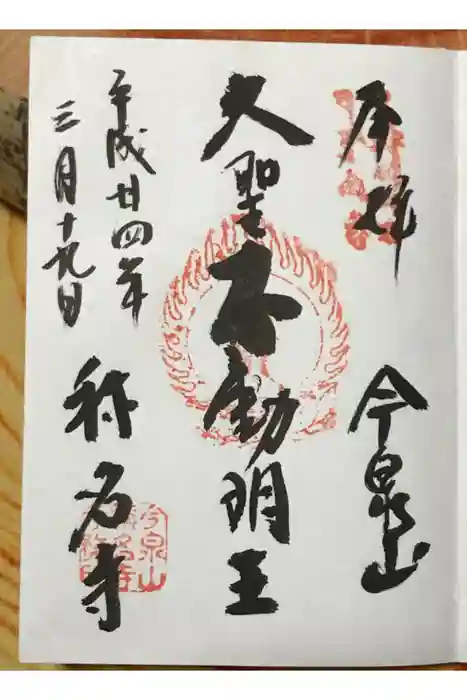 奉拝
今泉山
大聖不動明王
平成廿四年
三月十九日
称名寺
今泉山
称名寺